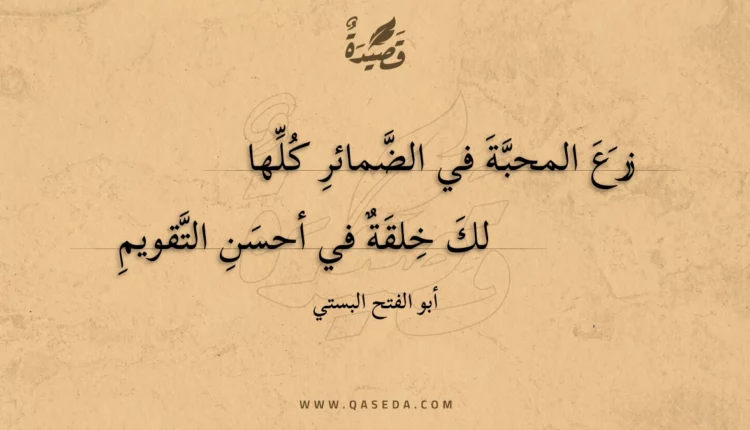 قَصِيْدَةٌ
زرَعَ المحبَّةَ في الضَّمائرِ كُلِّها
لكَ خِلقَةٌ في أحسَنِ التَّقويمِ
أبو الفتح البستي
WWW.QASEDA.COM